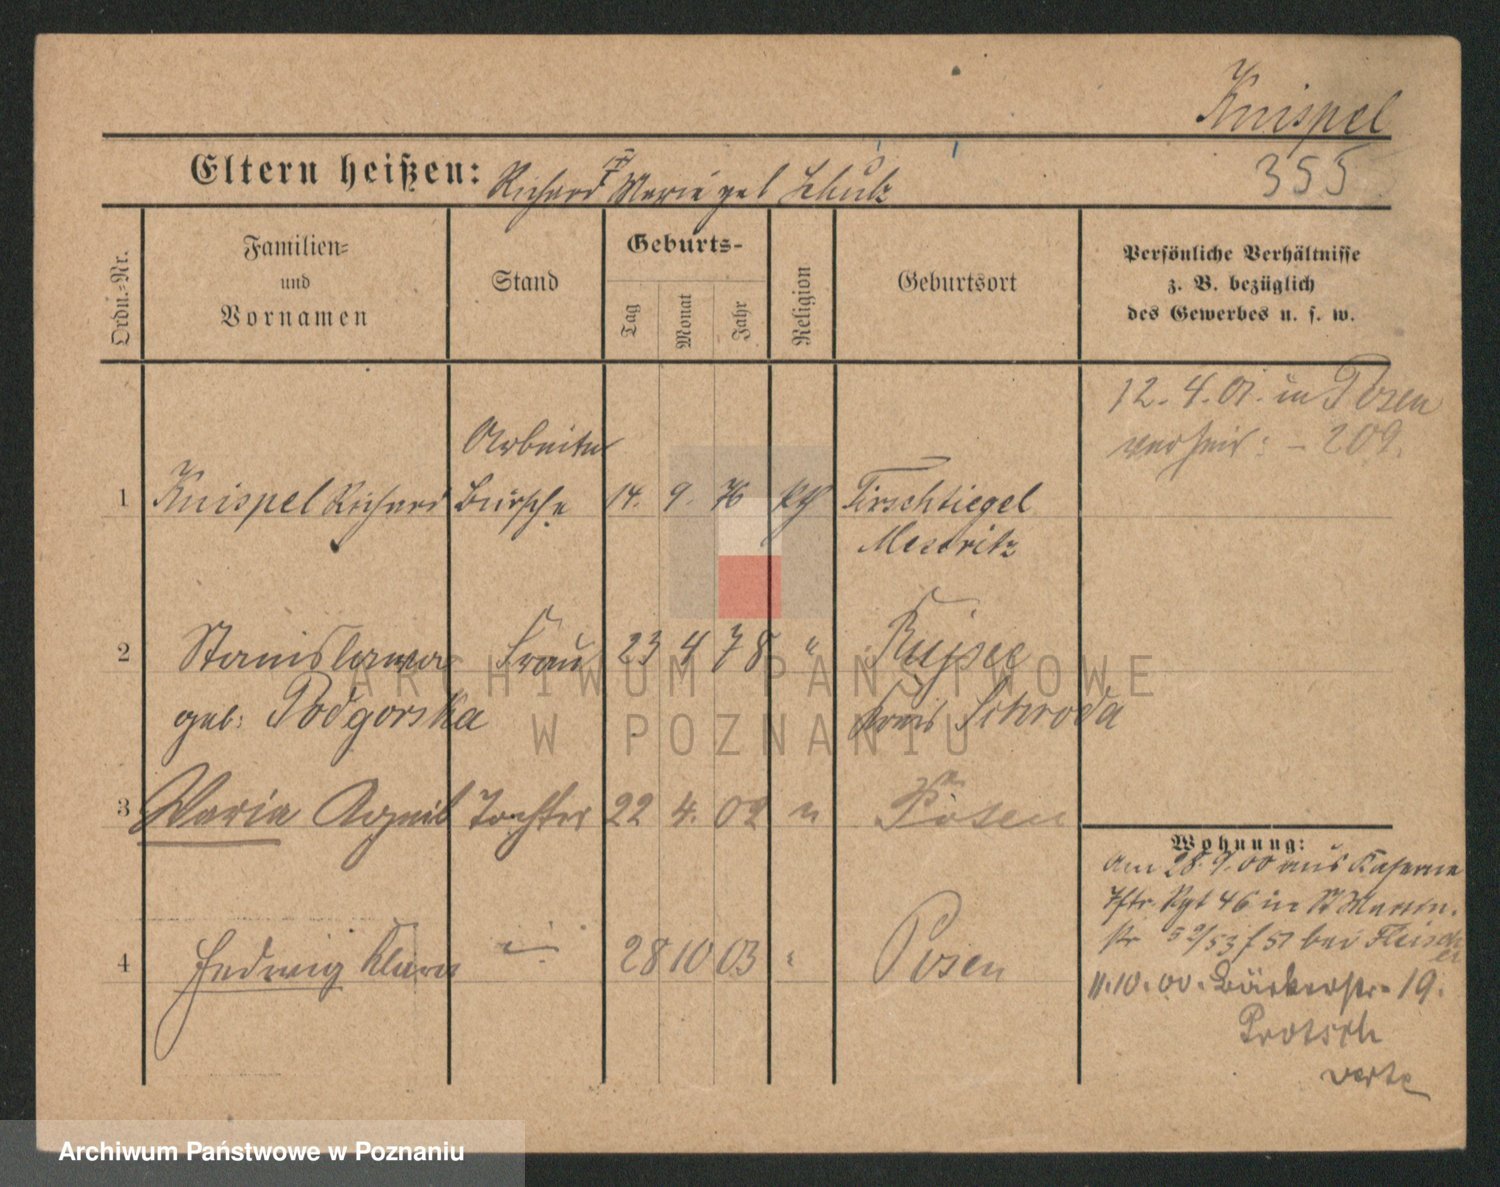 Knispel
355
Eltern heißen: Richard † Marie geb Schulz
Ordn.-Nr.
Familien-
und
Vornamen
Stand
Geburts-
Tag
Monat
Jahr
Religion
Geburtsort
Persönliche Verhältnisse
z. B. bezüglich
des Gewerbes u. s. w.
12. 4. 01. in Posen
verheir: - 209.
Arbeiter
1 Knispel Richard Bursche 14. 9. 76 kth Tirschtiegel
Meseritz
2 Stanislawa Frau 23 4 78 "
geb: Podgorska Kreis Schroda
3 Maria Agnes Tochter 22 4. 02 " Posen
4 Hedwig Klara " 28 10 03 " Posen
Wohnung:
Am 28. 9. 00 aus Kaserne
Iftr. Rgt 46 in St Martin-
str 52/53 f 51 bei Fleisch
er
11.10.00. Bäckerstr. 19.
Protsch
verte
ARCHIWUM PAŃSTWOWE
W POZNANIU
Archiwum Państwowe w Poznaniu